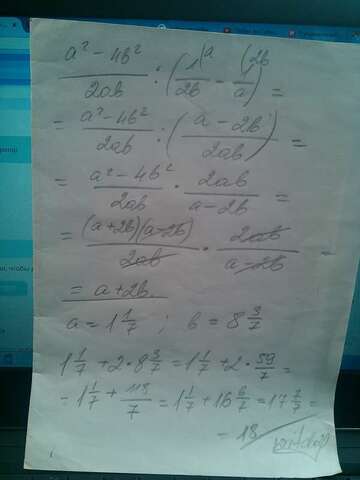 (a² - 4b²)/(2ab) : (1/(2b) - 1/a) =
= (a² - 4b²)/(2ab) : ((a - 2b)/(2ab)) =
= (a² - 4b²)/(2ab) · (2ab)/(a - 2b) =
= ((a + 2b)(a - 2b))/(2ab) · (2ab)/(a - 2b) =
= a + 2b.
a = 1 1/7 ; b = 8 3/7
1 1/7 + 2 · 8 3/7 = 1 1/7 + 2 · 59/7 =
= 1 1/7 + 118/7 = 1 1/7 + 16 6/7 = 17 7/7 =
= 18